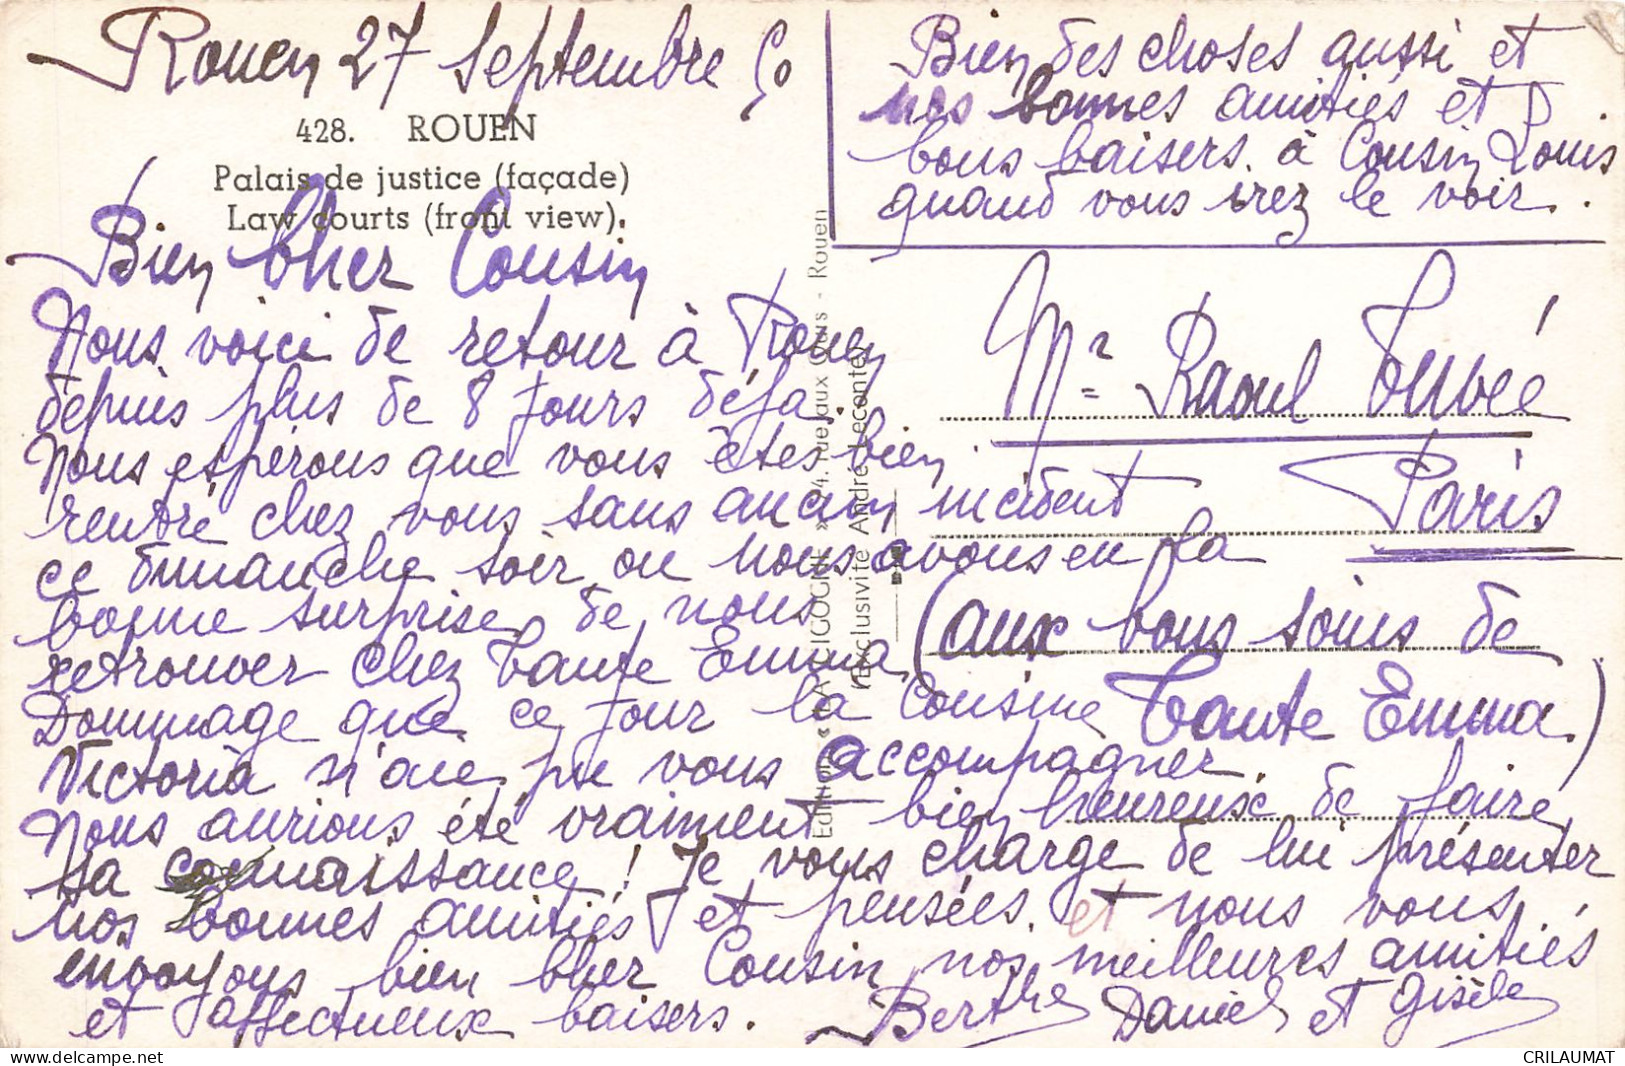 Rouen 27 Septembre 60
428. ROUEN
Palais de justice (façade)
Law courts (front view).
Bien cher Cousin
Nous voici de retour à Rouen
depuis plus de 8 jours déjà.
Nous espérons que vous êtes bien
rentré chez vous sans aucun incident
ce dimanche soir ou nous avons eu la
bonne surprise de nous
retrouver chez Tante Emma.
Dommage que ce jour la Cousine
Victoria n'aie pu vous accompagner
Nous aurions été vraiment bien heureux de faire
sa connaissance ! Je vous charge de lui présenter
nos bonnes amitiés et pensées. et nous vous
envoyons bien cher Cousin nos meilleures amitiés
et affectueux baisers. Berthe Daniel et Gisèle
Bien des choses aussi et
nos bonnes amitiés et
bons baisers à Cousin Louis
quand vous irez le voir.
Mr Raoul
Paris
(aux bons soins de
Tante Emma)
Editions « LA CIGOGNE » 24, rue aux Ours - Rouen
(Exclusivité André Leconte)
CRILAUMAT
delcampe.net